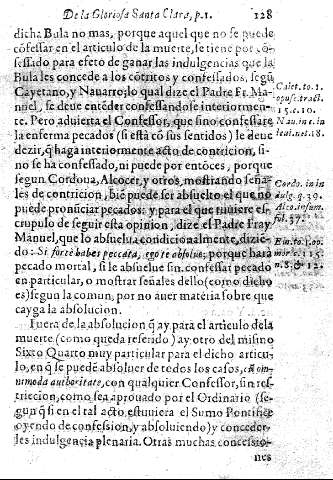 De la Gloriosa Santa Clara, p.1. 128
dicha Bula no mas, porque aquel que no se puede
cõfessar en el articulo de la muerte, se tiene por cõ-
fessado para efeto de ganar las indulgencias que la
Bula les concede a los cõtritos y confessados, segũ
Cayetano, y Nauarro, lo qual dize el Padre Fr. Ma-
nuel, se deue entẽder confessandose interiormen-
te. Pero aduierta el Confessor, que sino confessare
la enferma pecados (si està cõ sus sentidos) le deue
dezir, q̃ haga interiormente acto de contricion, si-
no se ha confessado, ni puede por entõces, porque
segun Cordoua, Alcocer, y otros, mostrando seña-
les de contricion, biẽ puede ser absuelto el que no
puede pronũciar pecados: y para el que tuuiere es-
crupulo de seguir esta opinion, dize el Padre Fray
Manuel, que lo absuelua condicionalmente, diziẽ-
do: Si fortè habes peccata, ego te absoluo, porque harà
pecado mortal, si le absuelue sin confessar pecado
en particular, o mostrar señales dello (como dicho
es) segun la comun, por no auer materia sobre que
cayga la absolucion.
Fuera de la absolucion q̃ ay para el articulo de la
muerte (como queda referido) ay otro del mismo
Sixto Quarto muy particular para el dicho articu-
lo, en q̃ se puedẽ absoluer de todos los casos, cũ om-
nimoda authoritate, con qualquier Confessor, sin res-
triccion, como sea aprouado por el Ordinario (se-
gun q̃ si en el tal acto estuuiera el Sumo Pontifice
oyendo de confession, y absoluiendo) y conceder-
les indulgencia plenaria. Otras muchas concessio-
nes
Caiet. to. 1.
opusc. tract.
15. c. 10.
Nau. in c. in
leui. not. 18.
Cordo. in in
dulg. q. 39.
Alco. in sum.
fol. 37.
Em. to. 1.
n. 8. & 12.